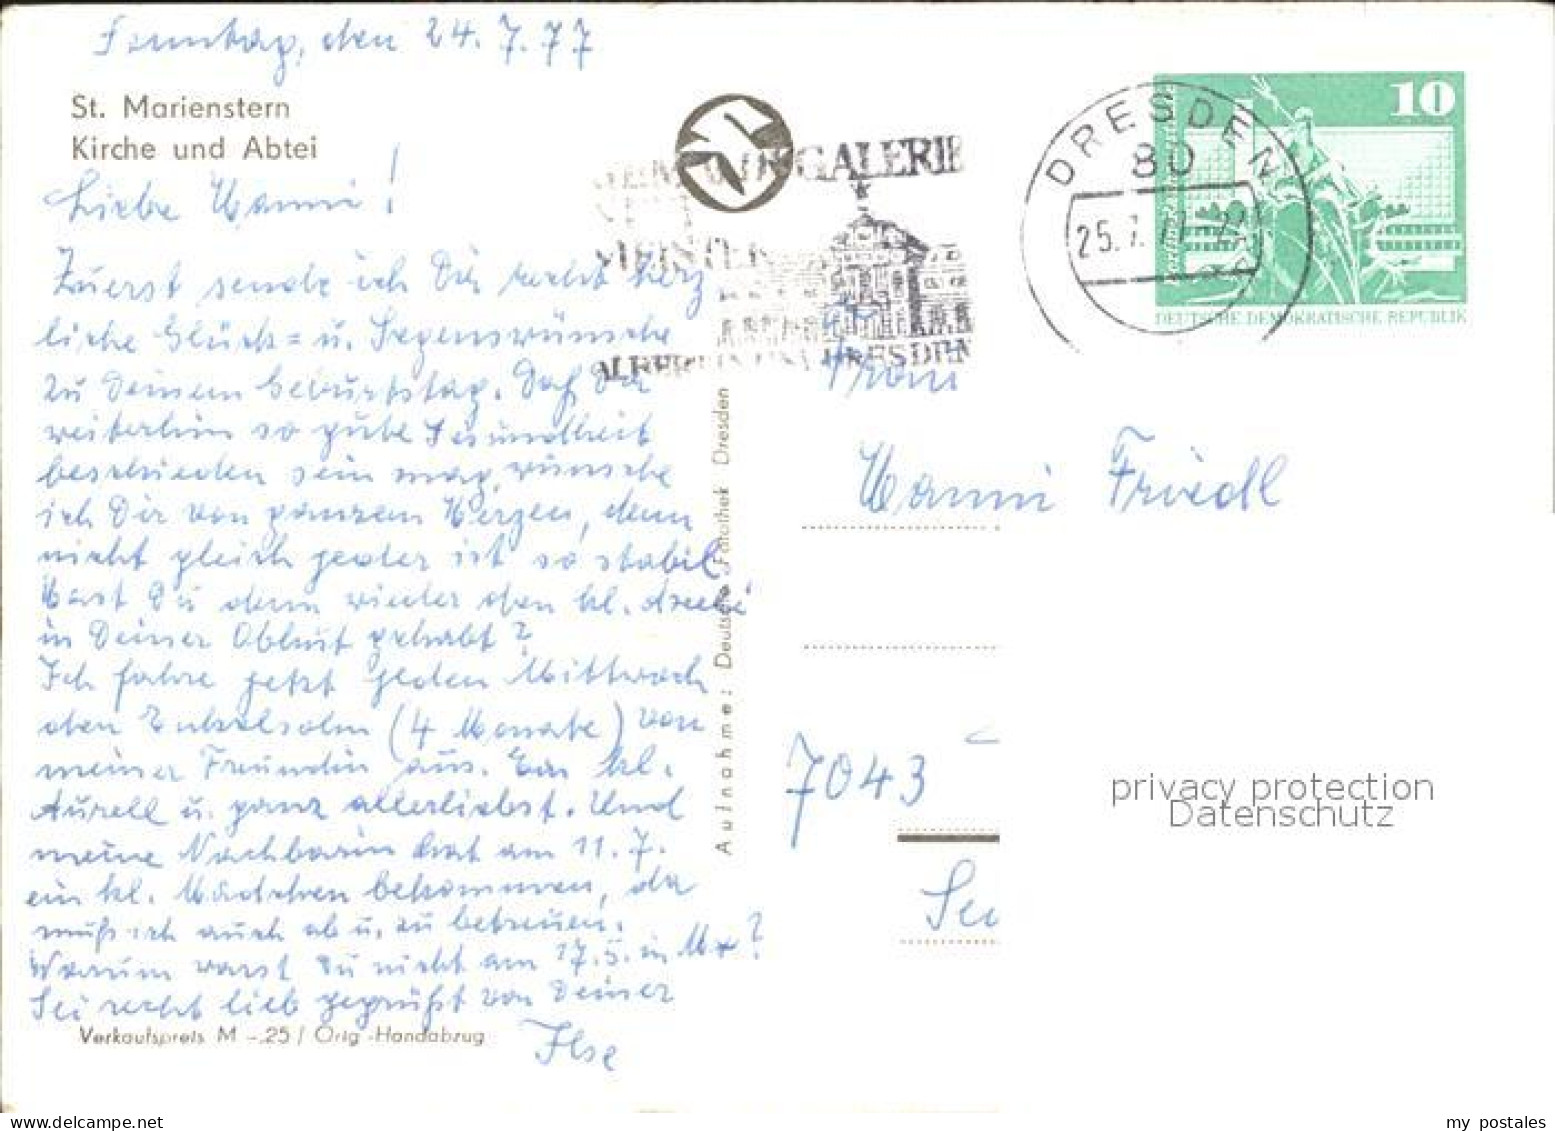 Sonntag, den 24.7.77
St. Marienstern
Kirche und Abtei
Liebe Hanni!
Zuerst sende ich Dir recht herz
liche Glück= u. Segenswünsche
zu Deinem Geburtstag. Daß Dir
weiterhin so gute Gesundheit
beschieden sein mag, wünsche
ich Dir von ganzem Herzen, denn
nicht gleich jeder ist so stabil
Hast Du denn wieder den kl.
in Deiner Obhut gehabt?
Ich fahre jetzt jeden Mittwoch
den Enkelsohn (4 Monate) von
meiner Freundin aus. Ein kl.
u. ganz allerliebst. Und
meine Nachbarin hat am 11.7.
ein kl. Mädchen bekommen, da
muß ich auch ab u. zu betreuen.
Warum warst Du nicht am 17.5. in ?
Sei recht lieb gegrüßt von Deiner
Ilse
Verkaufspreis M -.25 / Orig.-Handabzug
Aufnahme: Deutsche Fotothek Dresden
GALERIE
MEISTER
ALBERTINUM DRESDEN
DRESDEN
80
25.7.77-22
10
DEUTSCHE DEMOKRATISCHE REPUBLIK
Frau
Hanni Friedl
7043
privacy protection
Datenschutz
my postales